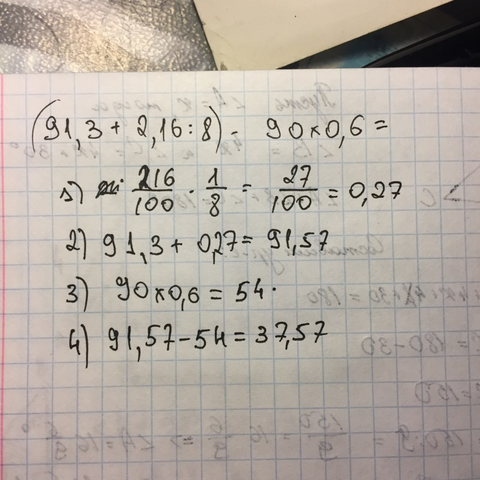 (91,3 + 2,16 : 8) - 90 × 0,6 =
1) 216/100 · 1/8 = 27/100 = 0,27
2) 91,3 + 0,27 = 91,57
3) 90 × 0,6 = 54.
4) 91,57 - 54 = 37,57